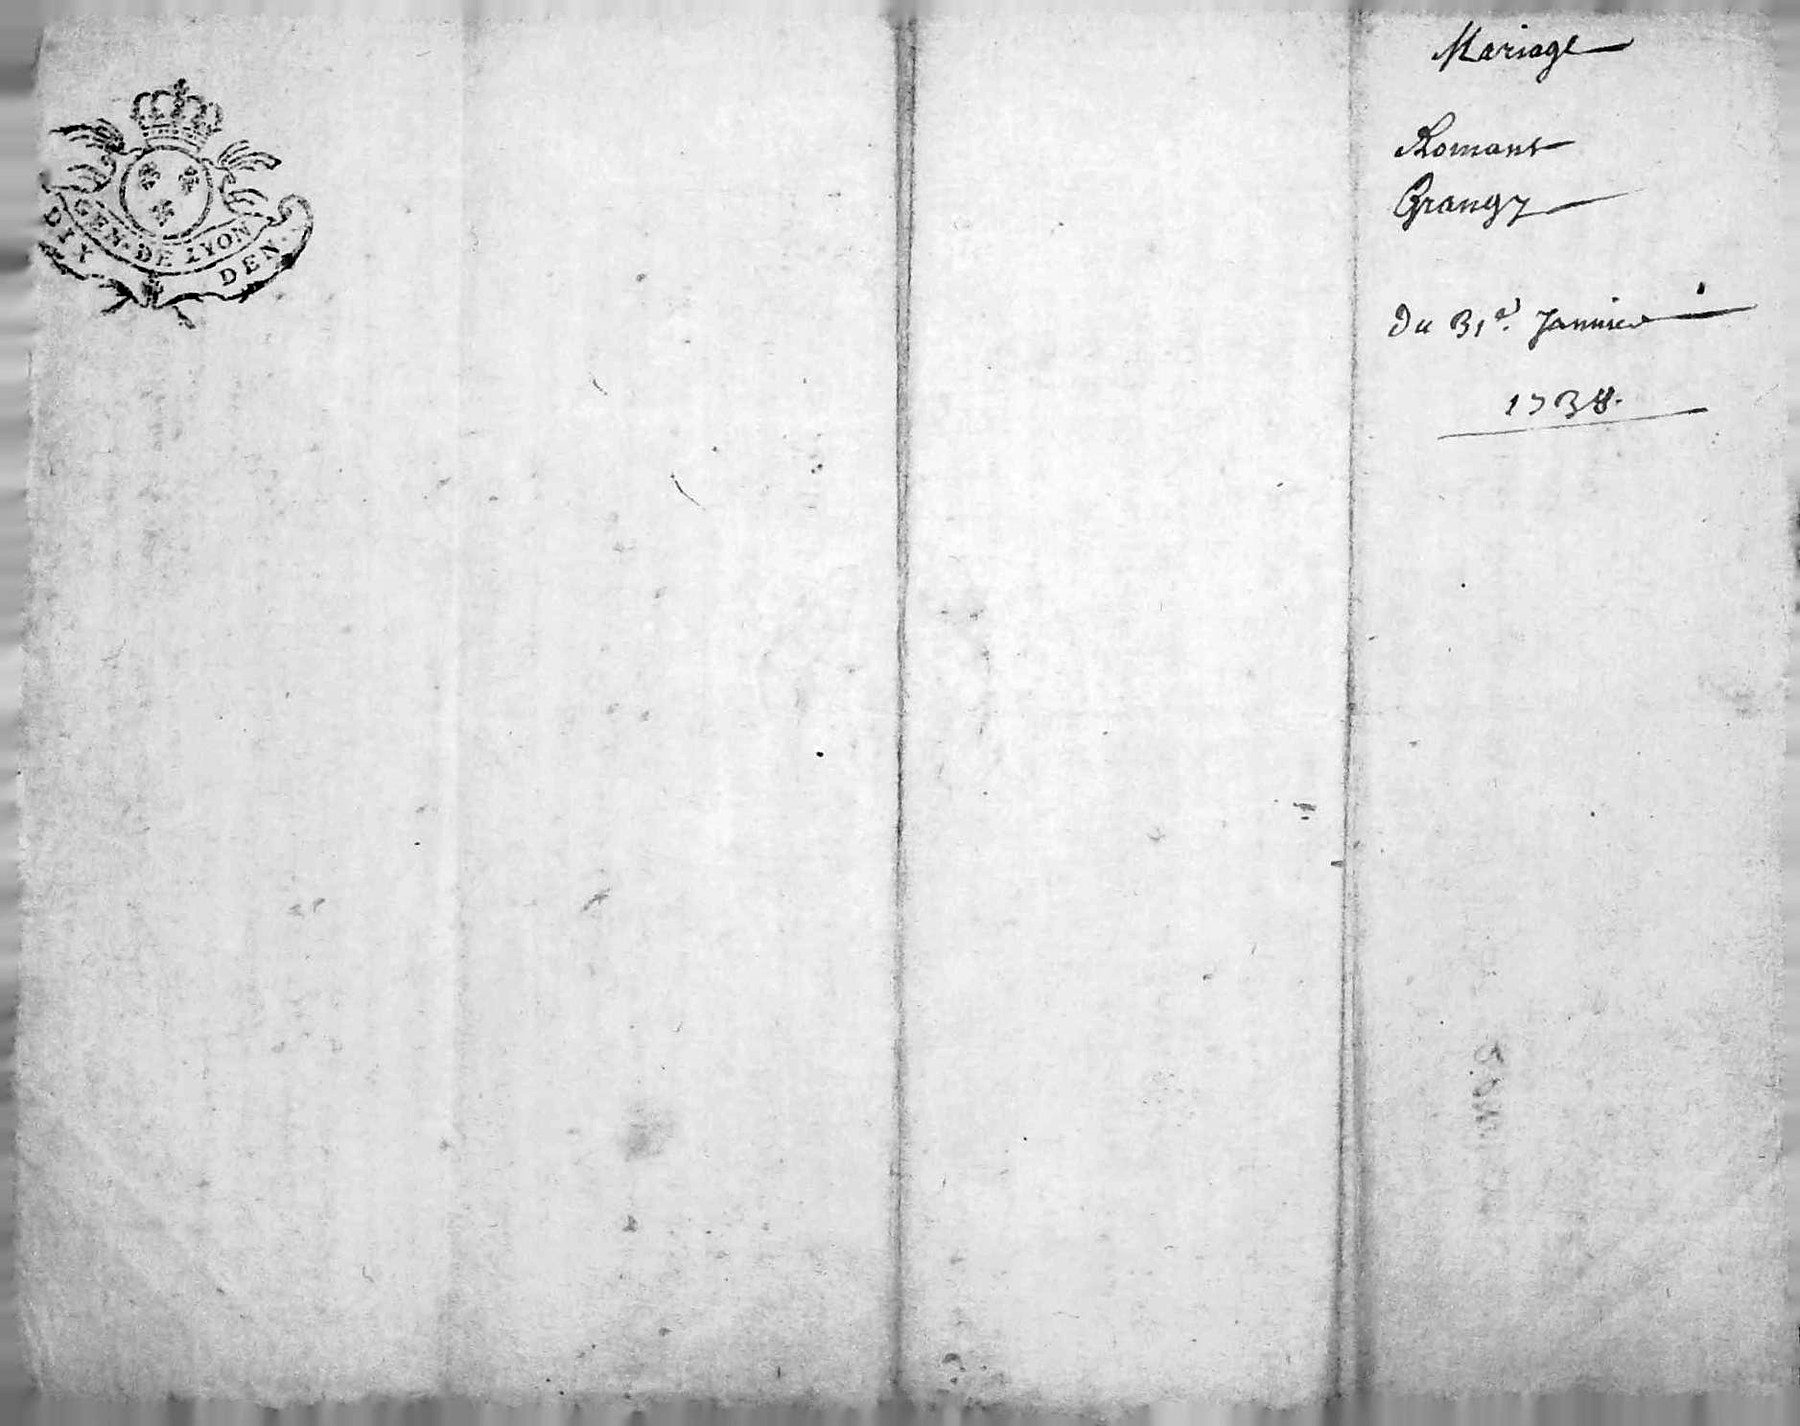 GEN. DE LYON
DIX DEN.
Mariage
Romans
Grangy
Du 31e. Janvier
1738.